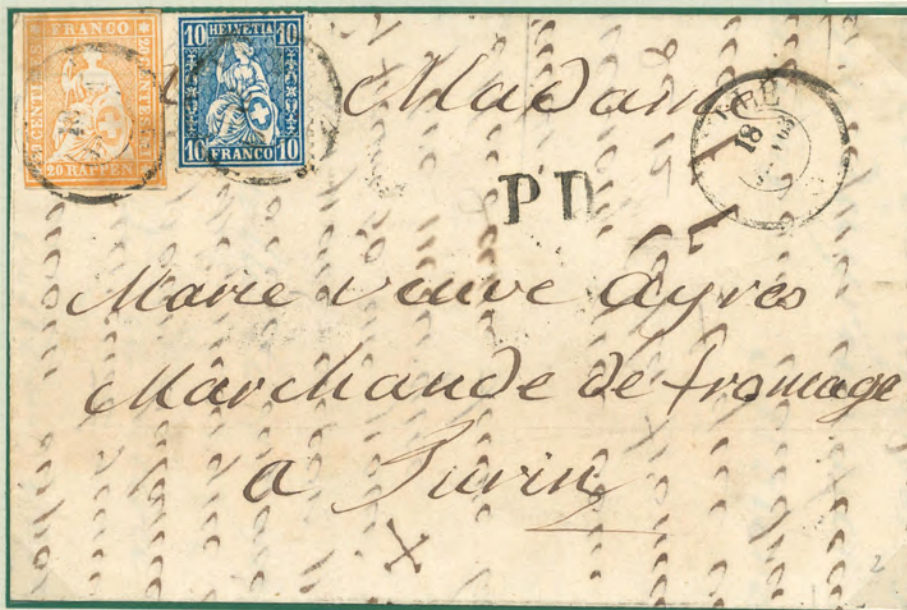 FRANCO
20 CENTIMES
20 RAPPEN
10 HELVETIA 10
10 FRANCO 10
18
PD
Madame
Marie veuve Ayres
Marchande de fromage
a Turin